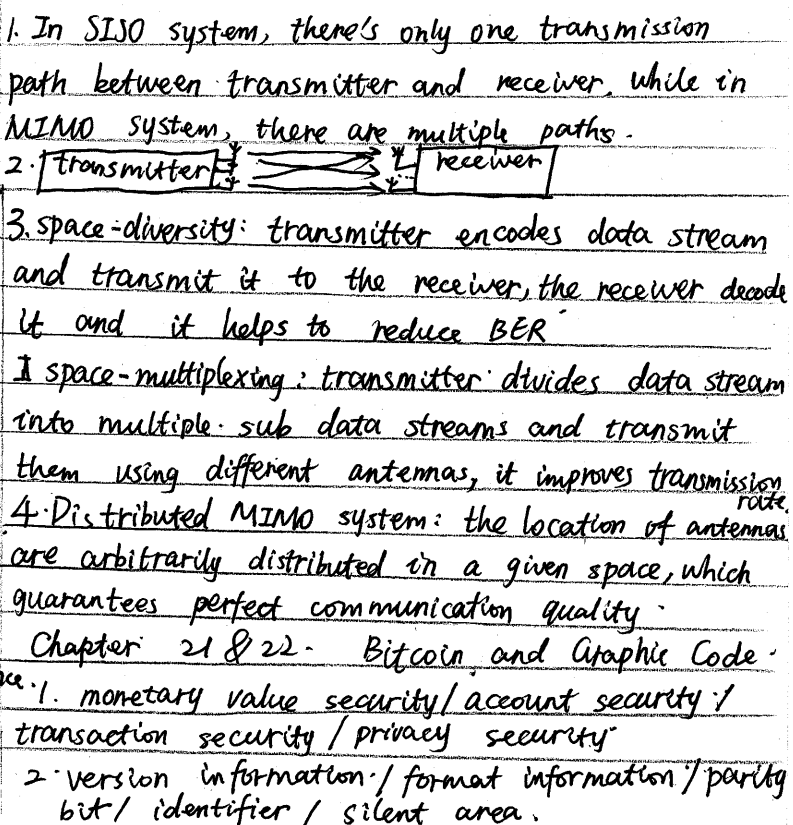 1. In SISO system, there's only one transmission
path between transmitter and receiver, while in
MIMO system, there are multiple paths.
2. transmitter receiver
3. space-diversity: transmitter encodes data stream
and transmit it to the receiver, the receiver decode
it and it helps to reduce BER
space-multiplexing: transmitter divides data stream
into multiple sub data streams and transmit
them using different antennas, it improves transmission
rate.
4. Distributed MIMO system: the location of antennas
are arbitrarily distributed in a given space, which
guarantees perfect communication quality.
Chapter 21 & 22. Bitcoin and Graphic Code.
1. monetary value security / account security /
transaction security / privacy security
2. version information / format information / parity
bit / identifier / silent area.